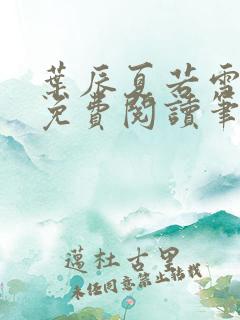 葉辰夏若雪
免費閱讀筆
邁杜古里
未经同意禁止转载